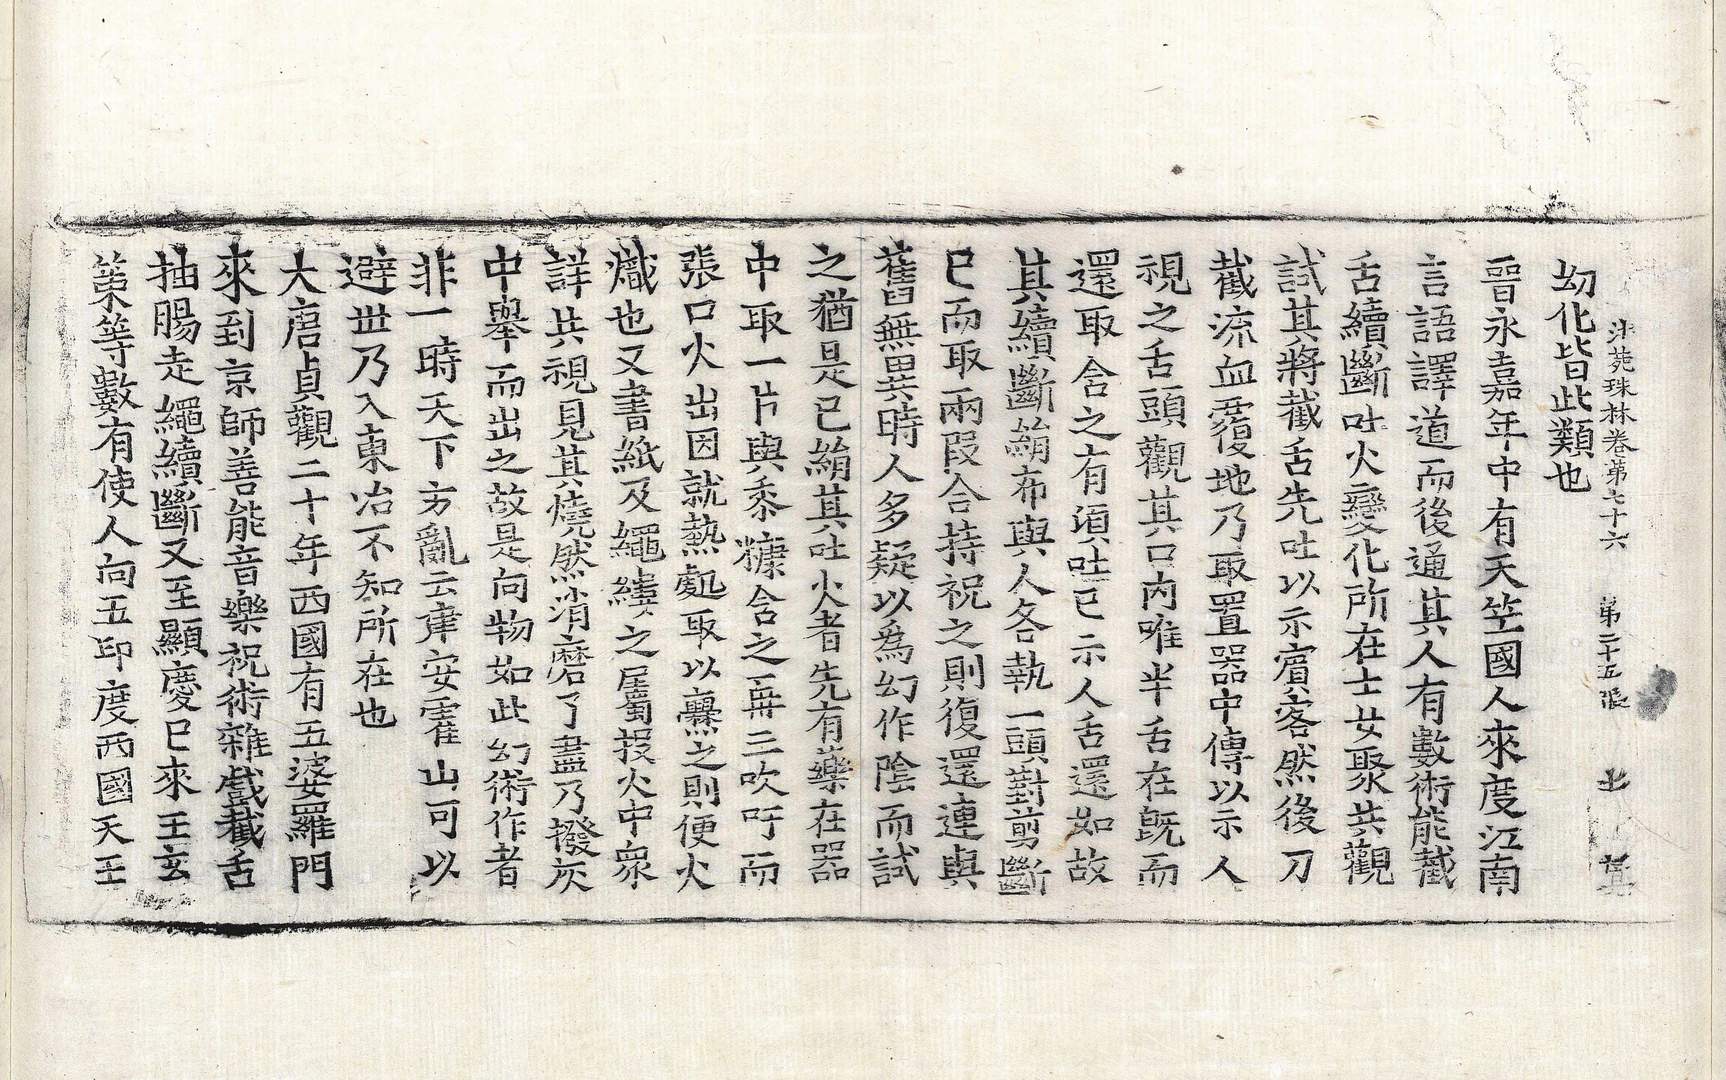 法苑珠林卷第七十六 第二十五張
幻化皆此類也
晉永嘉年中有天竺國人來度江南
言語譯道而後通其人有數術能截
舌續斷吐火變化所在士女聚共觀
試其將截舌先吐以示賓客然後刀
截流血覆地乃取置器中傳以示人
視之舌頭觀其口內唯半舌在旣而
還取含之有湏吐已示人舌還如故
其續斷絹布與人各執一頭對剪斷
已而取兩段合持祝之則復還連與
舊無異時人多疑以爲幻作陰而試
之猶是已絹其吐火者先有藥在器
中取一片與黍糠含之再三吹吁而
張口火出因就熱處取以爨之則便火
熾也又書紙及繩縷之屬投火中衆
詳共視見其燒然消磨了盡乃撥灰
中舉而出之故是向物如此幻術作者
非一時天下方亂云建安霍山可以
避世乃入東冶不知所在也
大唐貞觀二十年西國有五婆羅門
來到京師善能音樂祝術雜戲截舌
抽腸走繩續斷又至顯慶已來王玄
策等數有使人向五印度西國天王